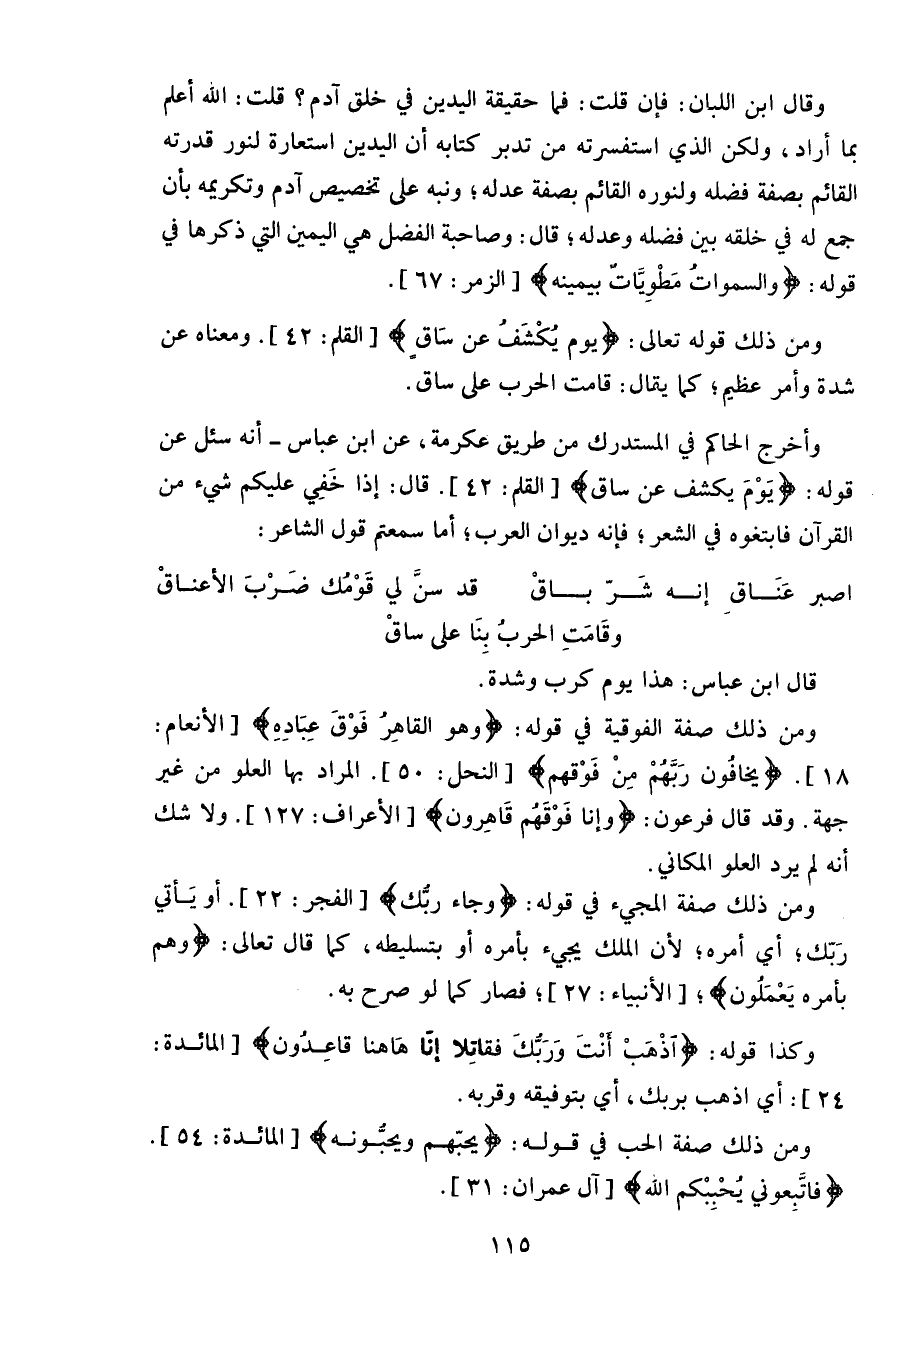 وقال ابن اللبان: فإن قلت: فما حقيقة اليدين في خلق آدم؟ قلت: الله أعلم
بما أراد، ولكن الذي استفسرته من تدبر كتابه أن اليدين استعارة لنور قدرته
القائم بصفة فضله ولنوره القائم بصفة عدله؛ ونبه على تخصيص آدم وتكريمه بأن
جمع له في خلقه بين فضله وعدله؛ قال: وصاحبة الفضل هي اليمين التي ذكرها في
قوله: ﴿والسمواتُ مَطْوِيَّاتٌ بيمينه﴾ [الزمر: ٦٧].
ومن ذلك قوله تعالى: ﴿يوم يُكْشَفُ عن سَاقٍ﴾ [القلم: ٤٢]. ومعناه عن
شدة وأمر عظيم؛ كما يقال: قامت الحرب على ساق.
وأخرج الحاكم في المستدرك من طريق عكرمة، عن ابن عباس ـ أنه سئل عن
قوله: ﴿يَوْمَ يكشف عن ساق﴾ [القلم: ٤٢]. قال: إذا خَفِي عليكم شيء من
القرآن فابتغوه في الشعر؛ فإنه ديوان العرب؛ أما سمعتم قول الشاعر:
اصبر عَنَــاقِ إنــه شَــرّ بــاقْ قد سنَّ لي قَوْمُك ضَرْبَ الأعنـاقْ
وقَامَتِ الحربُ بِنَا على ساقْ
قال ابن عباس: هذا يوم كرب وشدة.
ومن ذلك صفة الفوقية في قوله: ﴿وهو القاهِرُ فَوْقَ عِبَادِهِ﴾ [الأنعام:
١٨]. ﴿يخافُون رَبَّهُمْ مِنْ فَوْقهم﴾ [النحل: ٥٠]. المراد بها العلو من غير
جهة. وقد قال فرعون: ﴿وإنا فَوْقَهُم قَاهِرون﴾ [الأعراف: ١٢٧]. ولا شك
أنه لم يرد العلو المكاني.
ومن ذلك صفة المجيء في قوله: ﴿وجاء ربُّك﴾ [الفجر: ٢٢]. أو يَـأتي
رَبّك؛ أي أمره؛ لأن الملك يجيء بأمره أو بتسليطه، كما قال تعالى: ﴿وهم
بأمره يَعْمَلُون﴾؛ [الأنبياء: ٢٧]؛ فصار كما لو صرح به.
وكذا قوله: ﴿آذْهَبْ أَنْتَ وَرَبُّكَ فقاتِلا إنّا هَاهنا قاعِدُون﴾ [المائـدة:
٢٤]: أي اذهب بربك، أي بتوفيقه وقربه.
ومن ذلك صفة الحب في قـولـه: ﴿يحبّهـم ويحبُّونـه﴾ [المائـدة: ٥٤].
﴿فاتَّبِعوني يُحْبِبْكم الله﴾ [آل عمران: ٣١].
١١٥